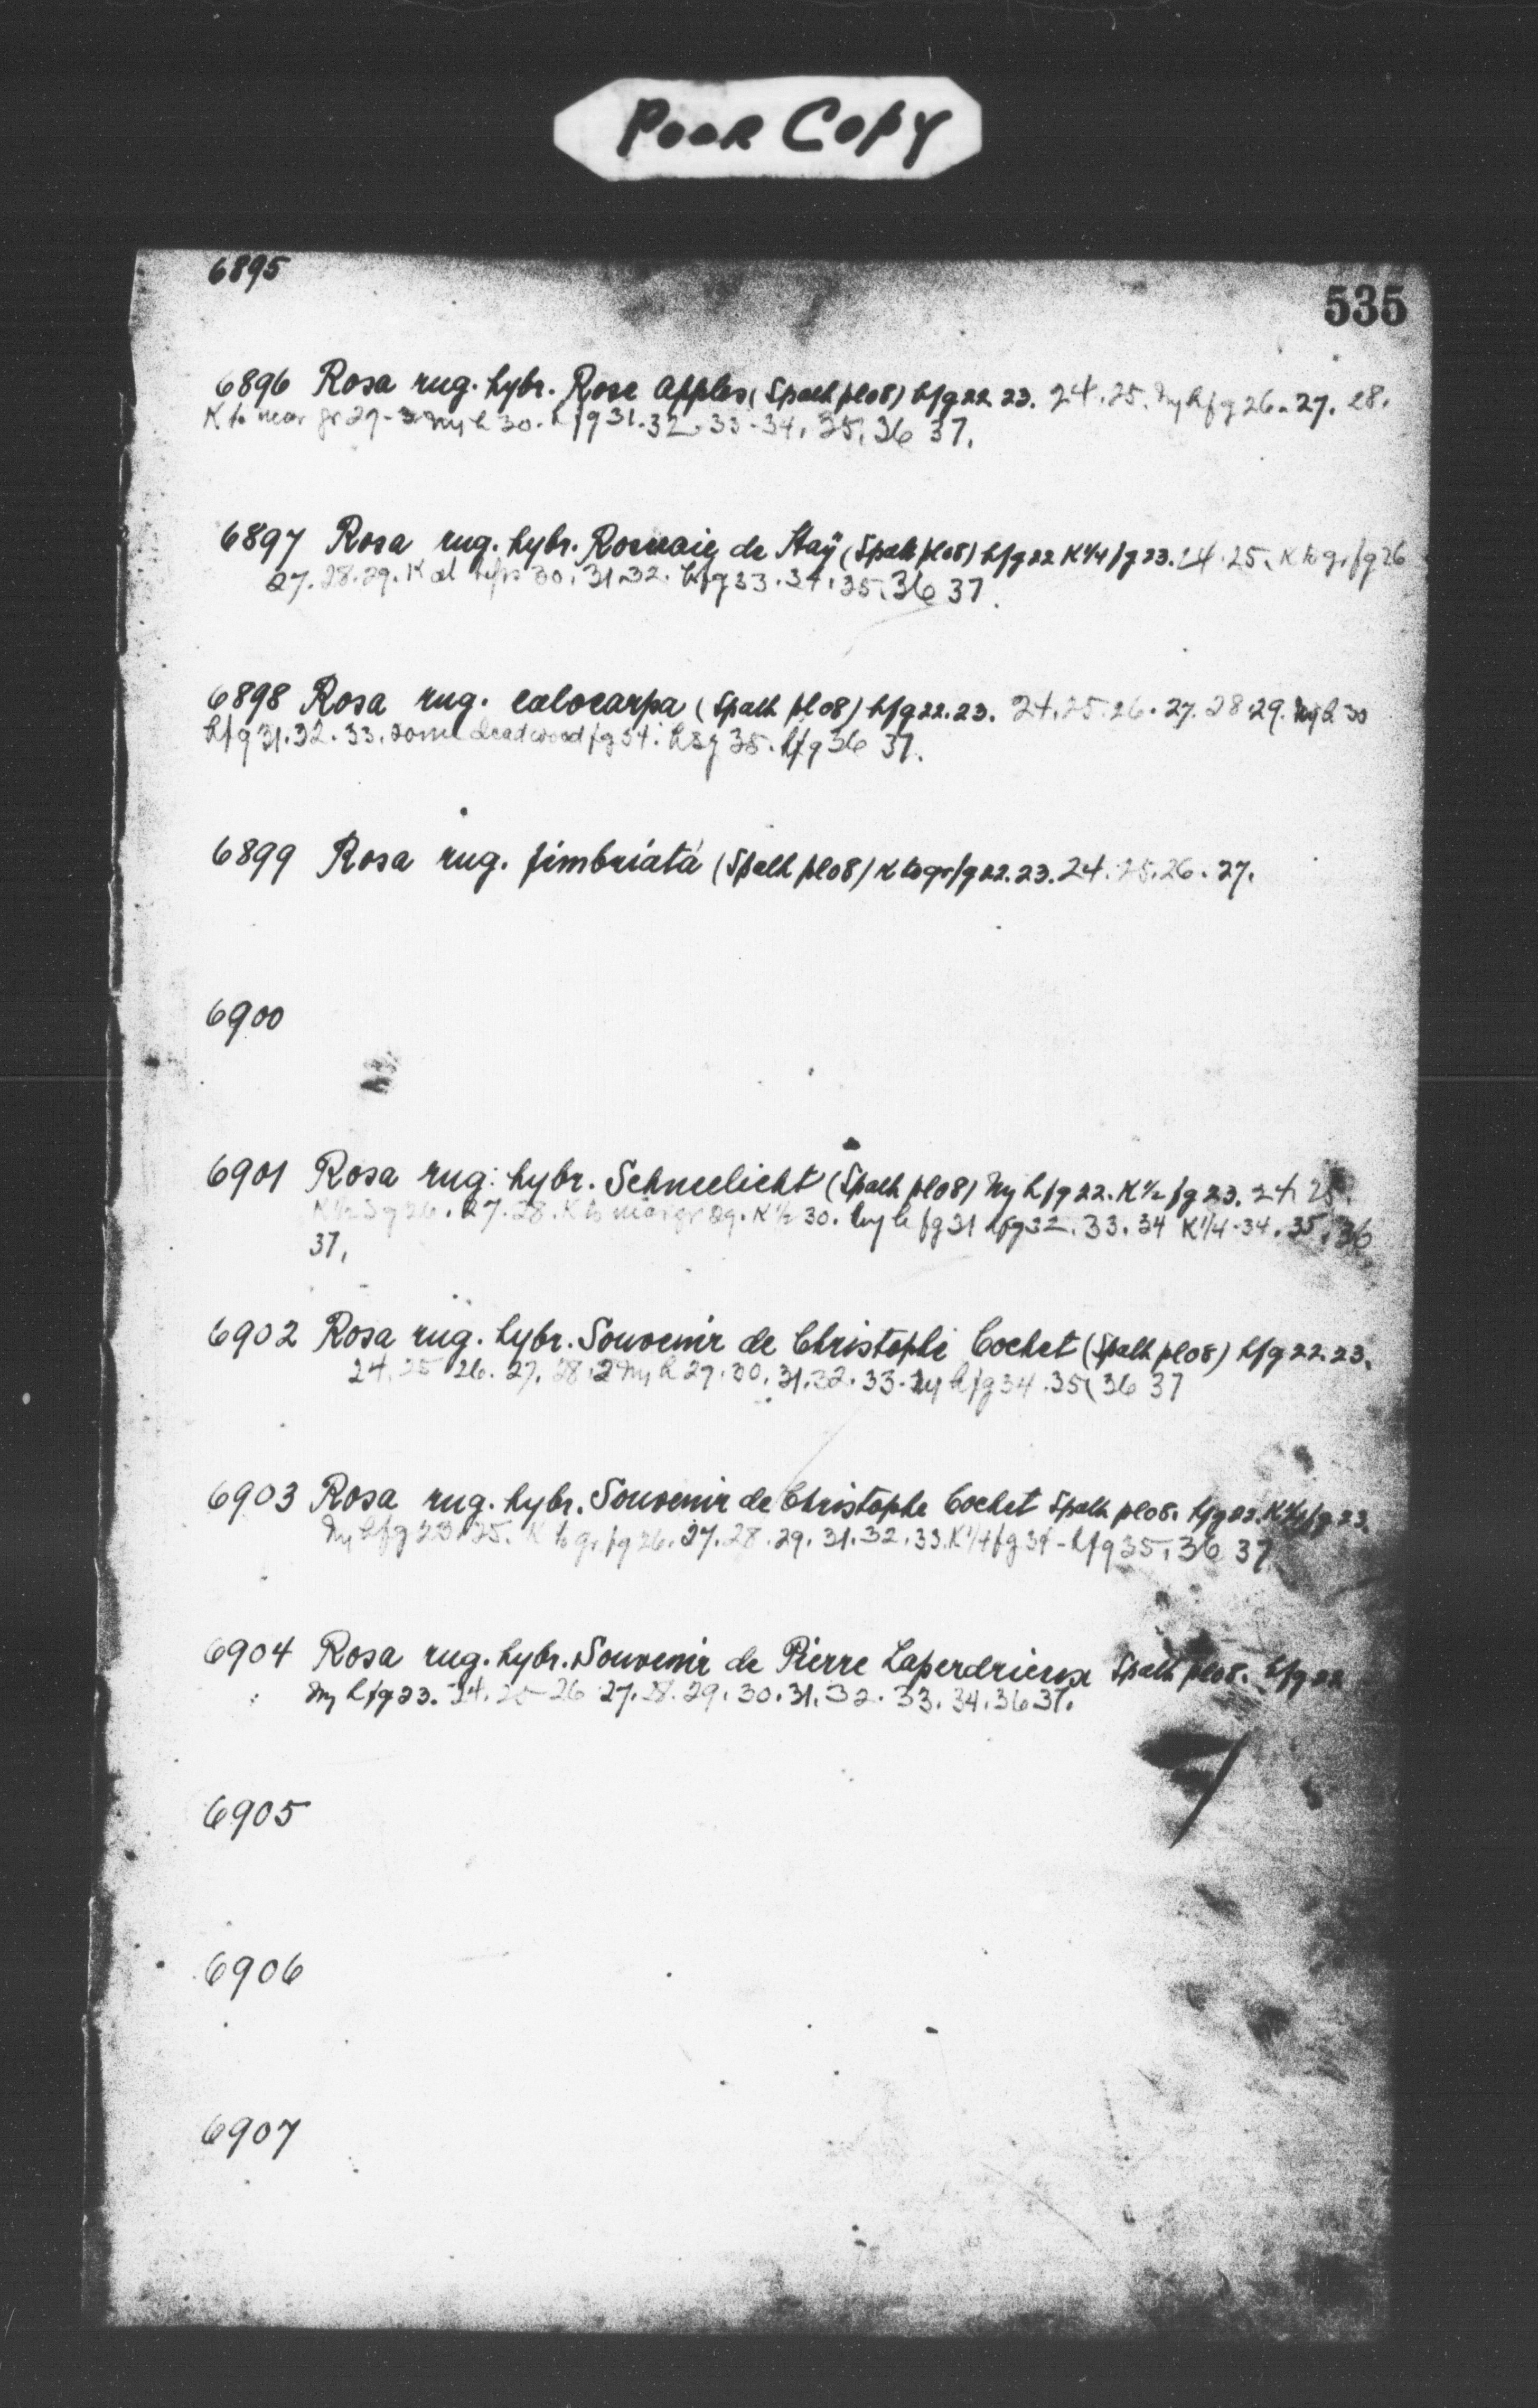 Poor Copy
6895
535
6896 Rosa rug. hybr. Rose Apples (Spath pl 08) hfg 22 23. 24. 25. Ny hfg 26. 27. 28.
K to near gr 29 - Ny h 30. hfg 31. 32. 33. 34. 35. 36 37.
6897 Rosa rug. hybr. Roseraie de Haÿ (Spath pl 08) hfg 22 K 1/4 fg 23. 24. 25. K to gr. fg 26
27. 28. 29. K at tips 30. 31. 32. hfg 33. 34. 35. 36 37.
6898 Rosa rug. calocarpa (Spath pl 08) hfg 22. 23. 24. 25. 26. 27. 28 29. Ny h 30
hfg 31. 32. 33. some deadwood fg 34. hsg 35. hfg 36 37.
6899 Rosa rug. fimbriata (Spath pl 08) K to gr fg 22. 23. 24. 25. 26. 27.
6900
6901 Rosa rug. hybr. Schneelicht (Spath pl 08) Ny hfg 22. K 1/2 fg 23. 24. 25.
K 1/2 Sg 26. 27. 28. K to near gr 29. K 1/2 30. Ny h fg 31 hfg 32. 33. 34 K 1/4 - 34. 35. 36
37.
6902 Rosa rug. hybr. Souvenir de Christophe Cochet (Spath pl 08) hfg 22. 23.
24. 25 26. 27. 28. Ny h 29. 30. 31. 32. 33. Ny hfg 34. 35. 36 37
6903 Rosa rug. hybr. Souvenir de Christophe Cochet Spath pl 08. hfg 22. K 1/4 fg 23
Ny hfg 25. K to gr. fg 26. 27. 28. 29. 31. 32. 33. K 1/4 fg 34 - hfg 35. 36 37
6904 Rosa rug. hybr. Souvenir de Pierre Laperdrieux Spath pl 08. hfg 22
Ny hfg 23. 24. 25 26 27. 28. 29. 30. 31. 32. 33. 34. 36 37.
6905
6906
6907